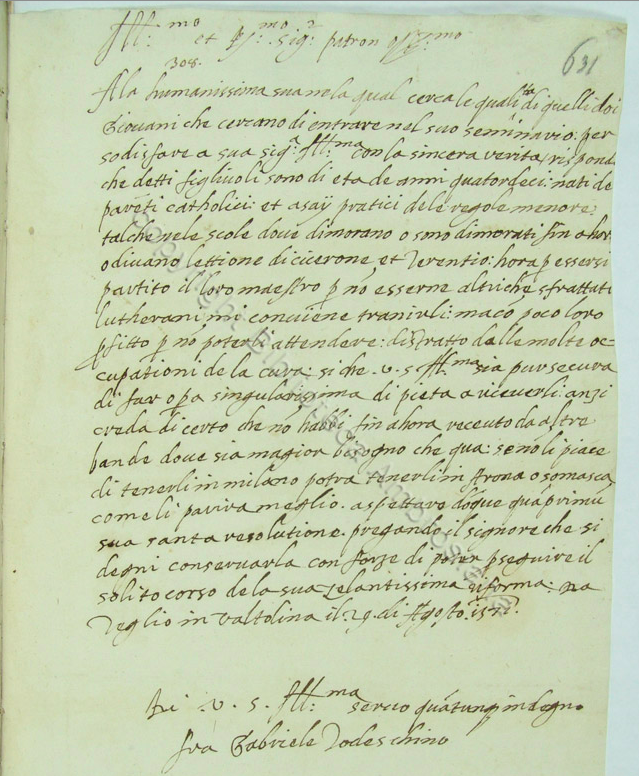 Ill:mo et R:mo sig:r patron oss:mo
631
308.
Ala humanissima sua nela qual cerca le qualita di quelli doi
Giovani che cercano di entrare nel suo seminario: per
sodisfare a sua sig:a Ill:ma con la sincera verita, rispondo
che detti figliuoli sono di eta de anni quatordeci: nati de
pareti catholici: et asay pratici dele regole menore:
talche nele scole dove dimorano o sono dimorati fin a hor
odivano lettione di cicerone, et Terentio: hora p essersi
partito il loro maestro p nō esserne altri che sfrattati
lutherani mi conviene tenirli: ma cō poco loro
pfitto p nō poterli attendere: distratto dalle molte oc=
cupationi de la cura: si che .v.s. Ill:ma sia pur secura
di far opa singularissima di pieta a riceverli: anzi
creda di certo che nō habbi fin ahora receuto da altre
bande dove sia magior bisogno che qua: se nō li piace
di tenerli in milano potra tenerli in Arona o somasca
come li parira meglio. aspettaro dōque quā primū
sua santa resolutione. pregando il signore che si
degni conservarla con forze di poter pseguire il
solito corso de la sua zelantissima riforma: Da
Teglio in valtolina il 29. di Agosto.
Di .v.s. Ill:ma servo quātunq indegno
fra Gabriele Todeschino